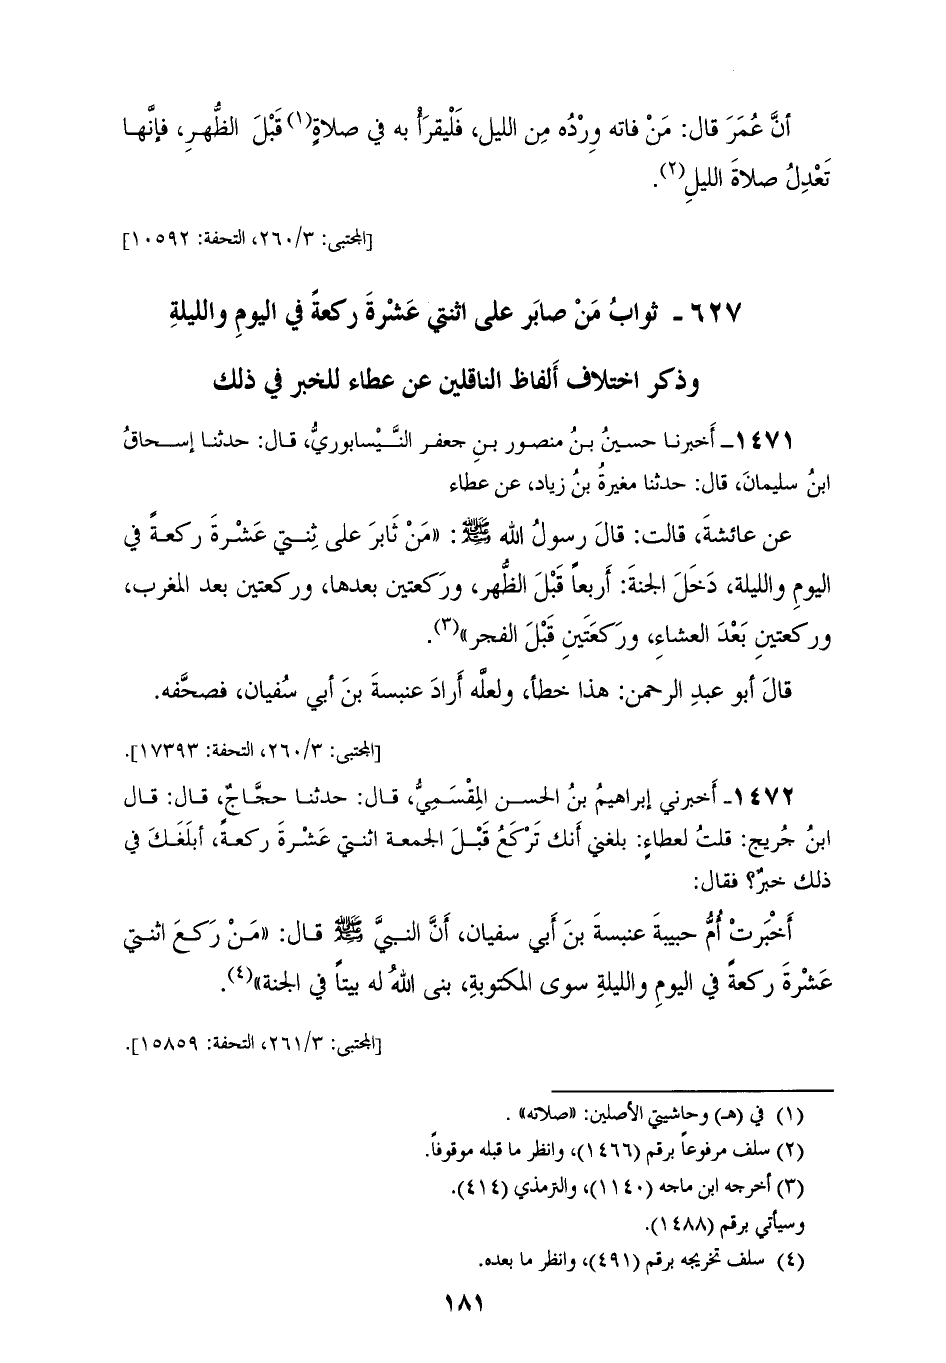 أنَّ عُمَرَ قال: مَنْ فاته وِرْدُه مِن الليل، فَلْيقرَأْ به في صلاةٍ(١) قَبْلَ الظُّهرِ، فإنَّها
تَعْدِلُ صلاةَ الليلِ(٢).
[المجتبى: ٢٦٠/٣، التحفة: ١٠٥٩٢]
٦٢٧ - ثوابُ مَنْ صابَر على اثنتي عَشْرةَ ركعةً في اليومِ والليلةِ
وذكر اختلاف ألفاظ الناقلين عن عطاء للخبر في ذلك
١٤٧١ـ أخبرنا حسينُ بنُ منصور بنِ جعفر النَّيْسابوريُّ، قال: حدثنا إسحاقُ
ابنُ سليمانَ، قال: حدثنا مغيرةُ بنُ زياد، عن عطاء
عن عائشةَ، قالت: قالَ رسولُ الله ﷺ: «مَنْ ثَابَرَ على ثِنتي عَشْرةَ ركعةً في
اليومِ والليلة، دَخَلَ الجنةَ: أربعاً قَبْلَ الظُّهر، ورَكعتين بعدها، وركعتين بعد المغرب،
وركعتينِ بَعْدَ العشاءِ، ورَكعَتَينِ قَبْلَ الفجر»(٣).
قالَ أبو عبدِ الرحمن: هذا خطأ، ولعلَّه أرادَ عنبسةَ بنَ أبي سُفيان، فصحَّفه.
[المجتبى: ٢٦٠/٣، التحفة: ١٧٣٩٣].
١٤٧٢ـ أخبرني إبراهيمُ بنُ الحسن المِقْسَمِيُّ، قال: حدثنا حجَّاجٌ، قال: قال
ابنُ جُريج: قلتُ لعطاءٍ: بلغني أنك تَرْكَعُ قَبْلَ الجمعة اثنتي عَشْرةَ ركعةً، أبلَغَكَ في
ذلك خبرٌ؟ فقال:
أَخْبَرتْ أمُّ حبيبةَ عنبسةَ بنَ أبي سفيان، أنَّ النبيَّ ﷺ قال: «مَنْ رَكعَ اثنتي
عَشْرةَ ركعةً في اليومِ والليلةِ سوى المكتوبةِ، بنى اللهُ له بيتاً في الجنة»(٤).
[المجتبى: ٢٦١/٣، التحفة: ١٥٨٥٩].
(١) في (هـ) وحاشيتي الأصلين: «صلاته» .
(٢) سلف مرفوعاً برقم (١٤٦٦)، وانظر ما قبله موقوفاً.
(٣) أخرجه ابن ماجه (١١٤٠)، والترمذي (٤١٤).
وسيأتي برقم (١٤٨٨).
(٤) سلف تخريجه برقم (٤٩١)، وانظر ما بعده.
١٨١